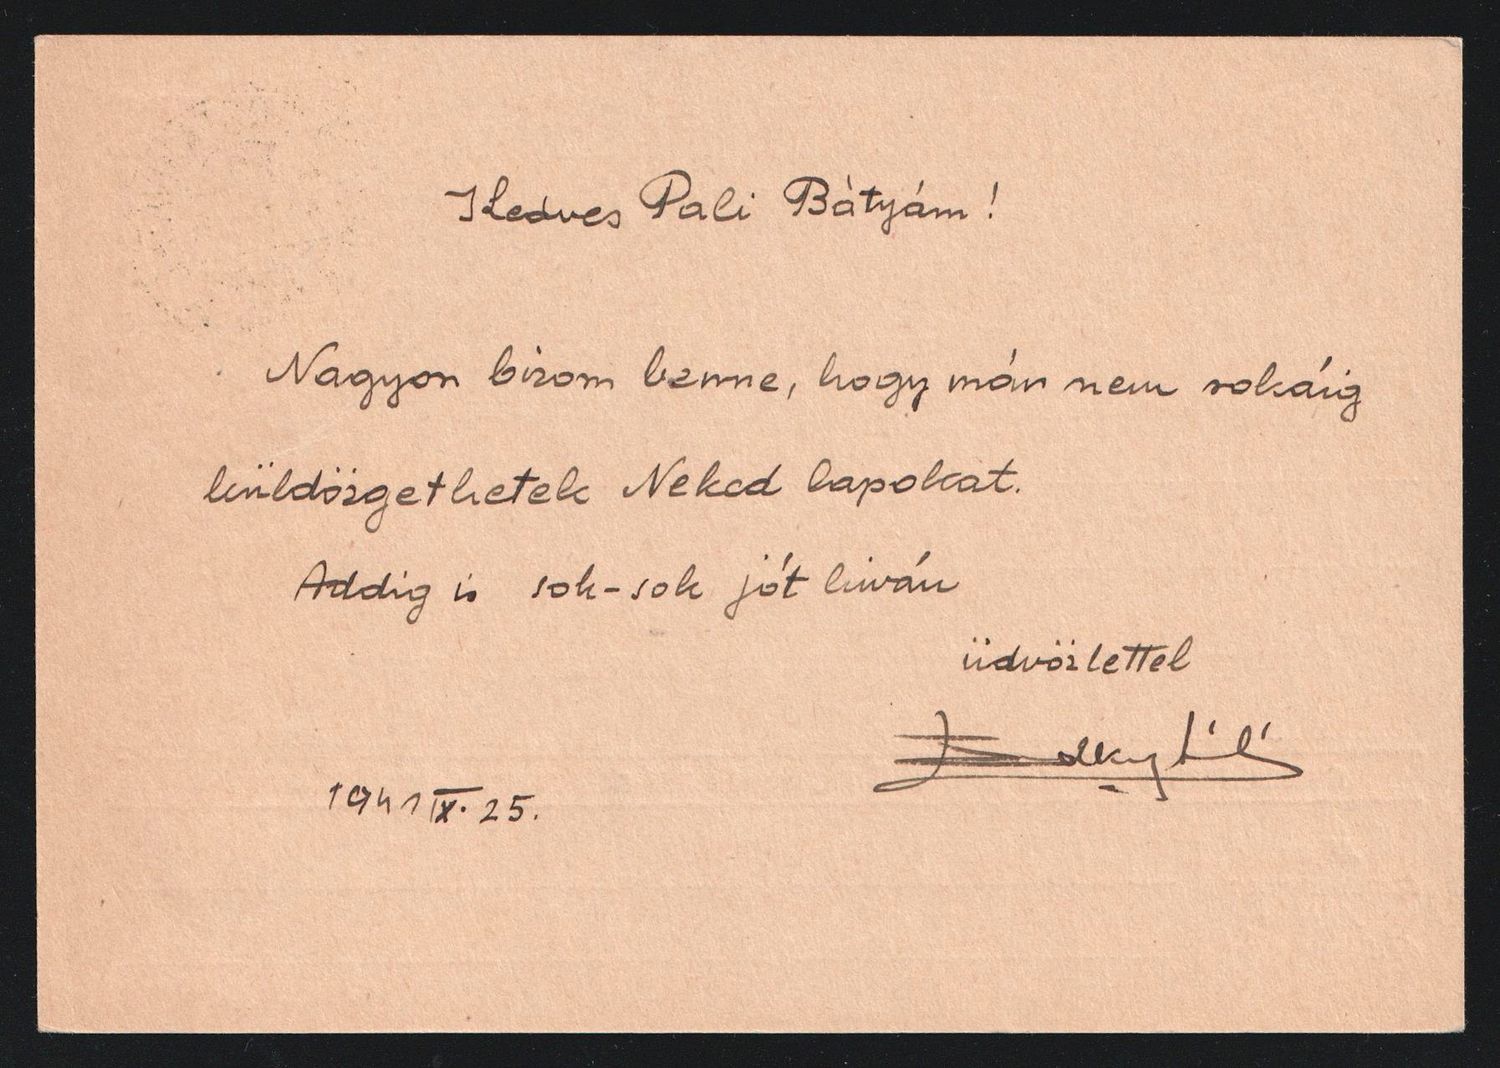 Kedves Pali Bátyám!
Nagyon bizom benne, hogy már nem sokáig
küldözgethetek Neked lapokat.
Addig is sok-sok jót kiván
üdvözlettel
1941 IX. 25.